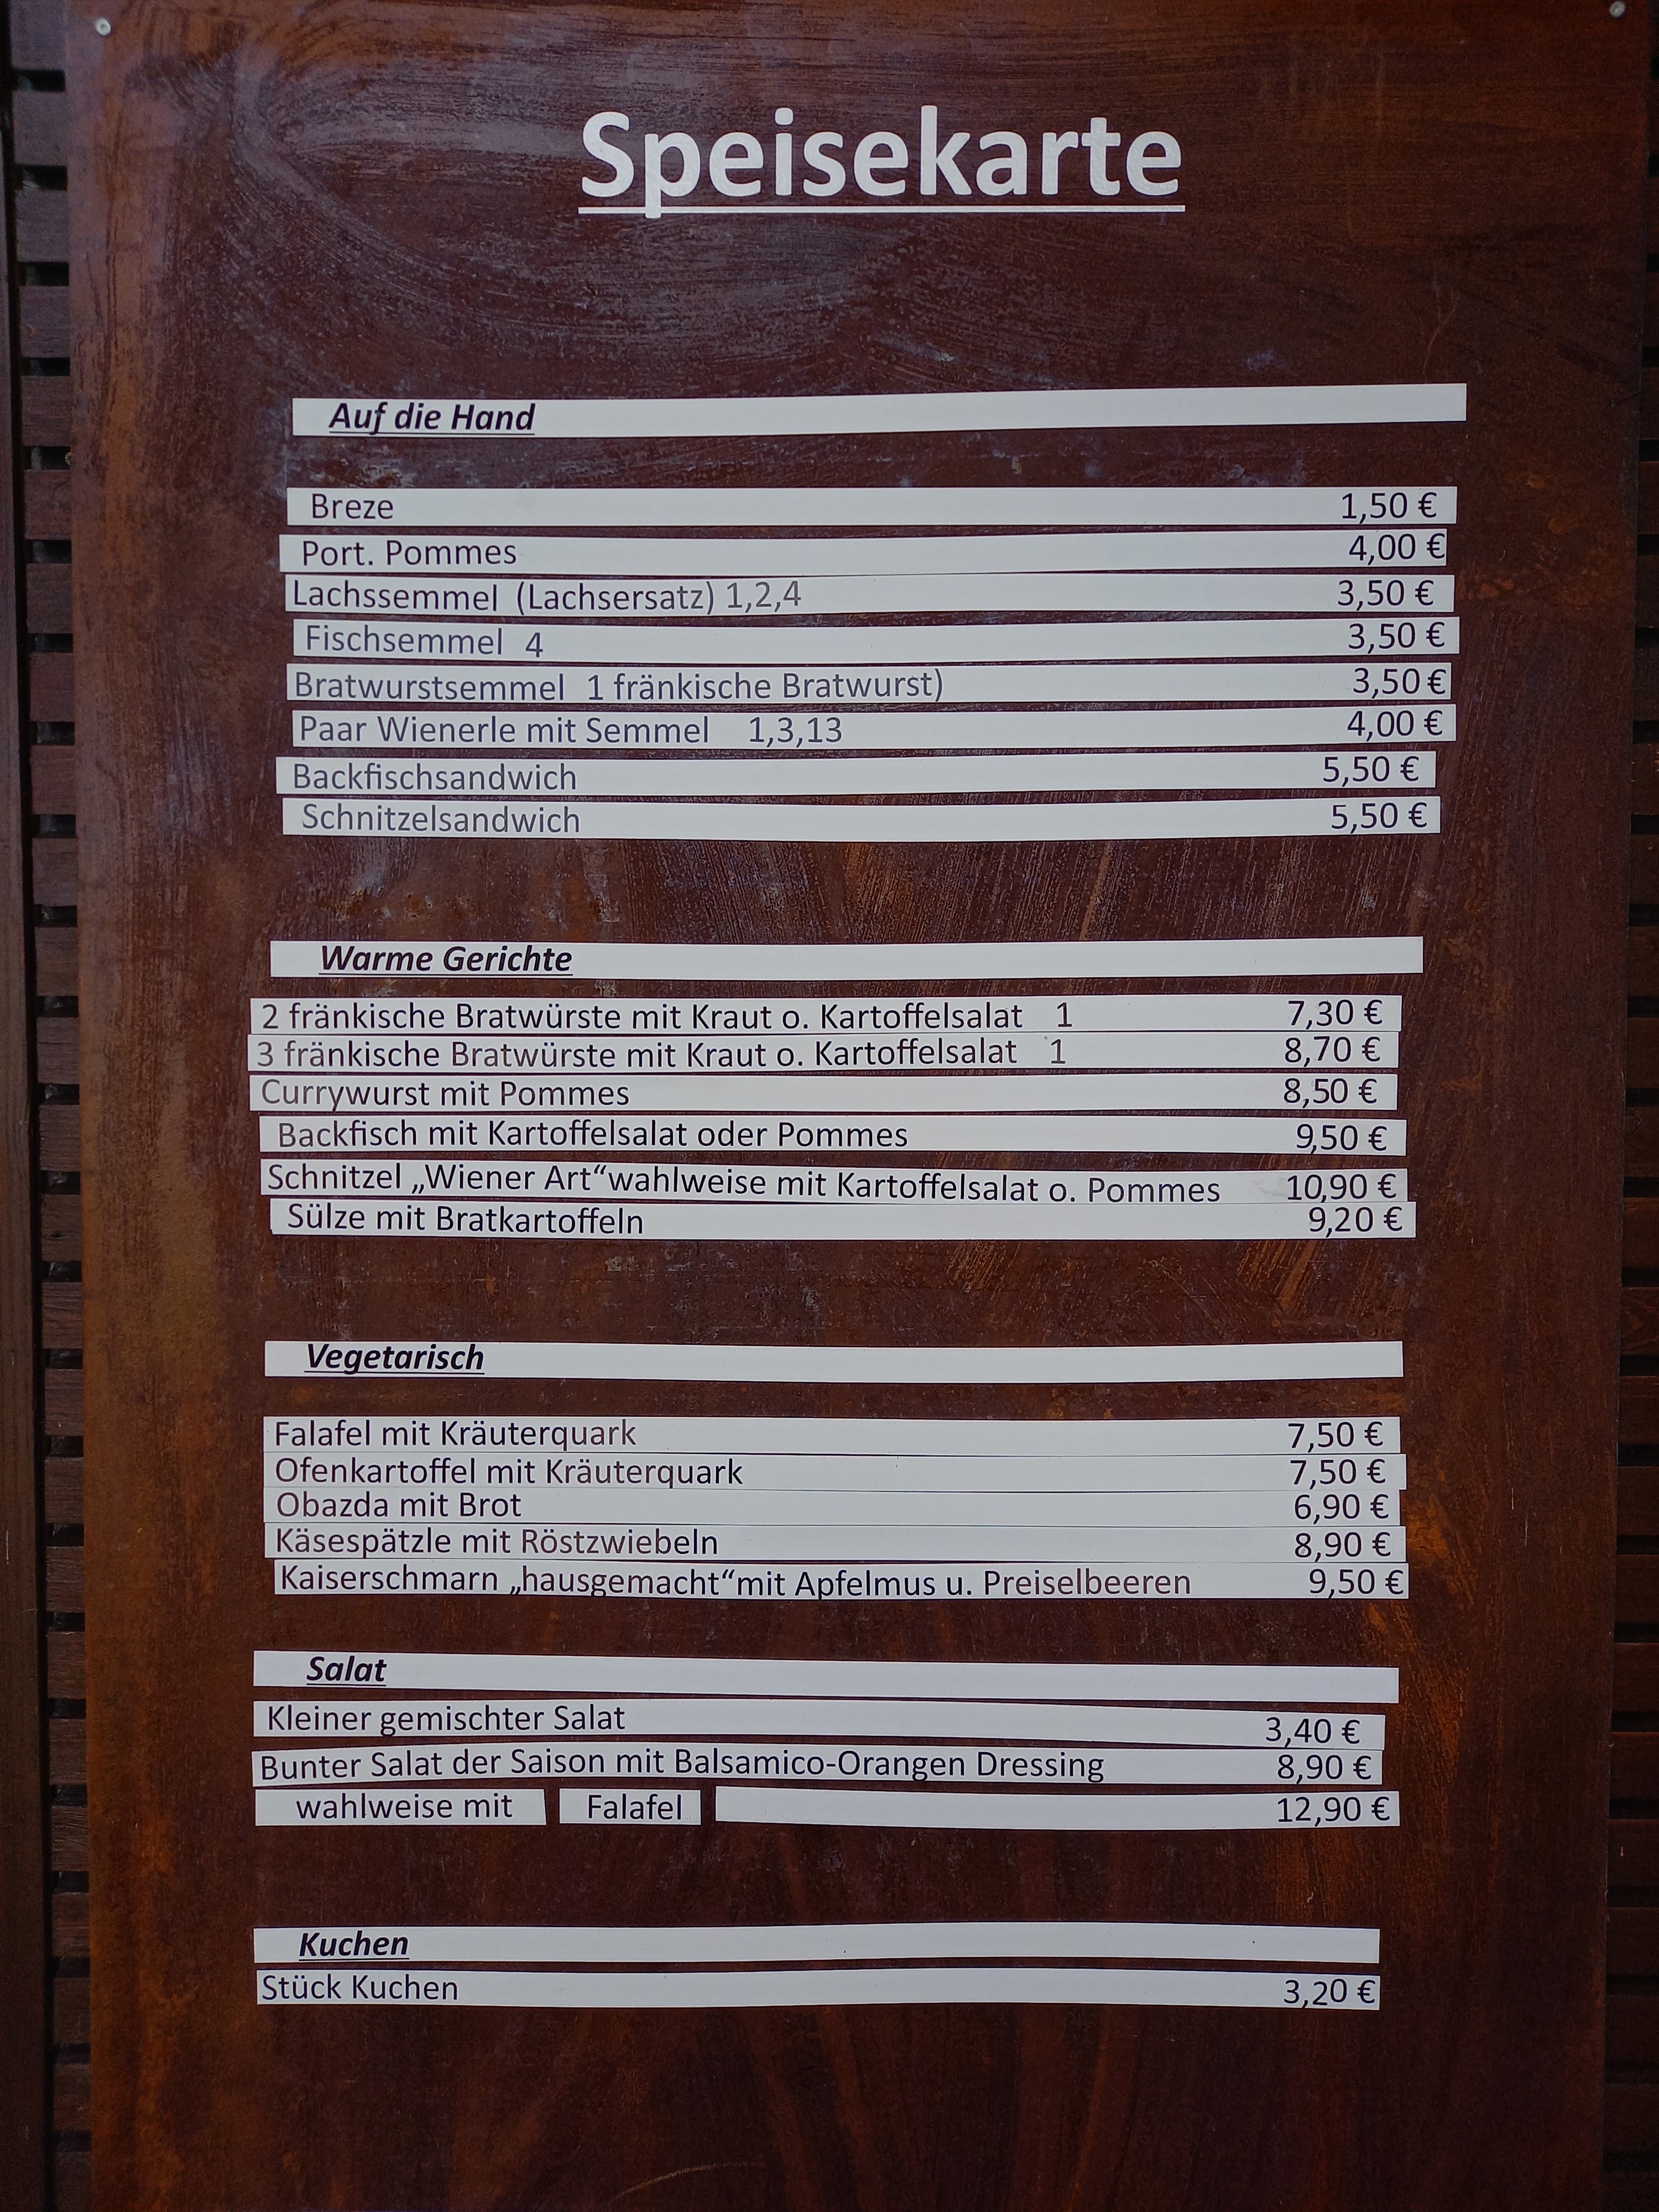 Speisekarte
Auf die Hand
Breze 1,50 €
Port. Pommes 4,00 €
Lachssemmel (Lachsersatz) 1,2,4 3,50 €
Fischsemmel 4 3,50 €
Bratwurstsemmel 1 fränkische Bratwurst) 3,50 €
Paar Wienerle mit Semmel 1,3,13 4,00 €
Backfischsandwich 5,50 €
Schnitzelsandwich 5,50 €
Warme Gerichte
2 fränkische Bratwürste mit Kraut o. Kartoffelsalat 1 7,30 €
3 fränkische Bratwürste mit Kraut o. Kartoffelsalat 1 8,70 €
Currywurst mit Pommes 8,50 €
Backfisch mit Kartoffelsalat oder Pommes 9,50 €
Schnitzel „Wiener Art“wahlweise mit Kartoffelsalat o. Pommes 10,90 €
Sülze mit Bratkartoffeln 9,20 €
Vegetarisch
Falafel mit Kräuterquark 7,50 €
Ofenkartoffel mit Kräuterquark 7,50 €
Obazda mit Brot 6,90 €
Käsespätzle mit Röstzwiebeln 8,90 €
Kaiserschmarn „hausgemacht“mit Apfelmus u. Preiselbeeren 9,50 €
Salat
Kleiner gemischter Salat 3,40 €
Bunter Salat der Saison mit Balsamico-Orangen Dressing 8,90 €
wahlweise mit Falafel 12,90 €
Kuchen
Stück Kuchen 3,20 €